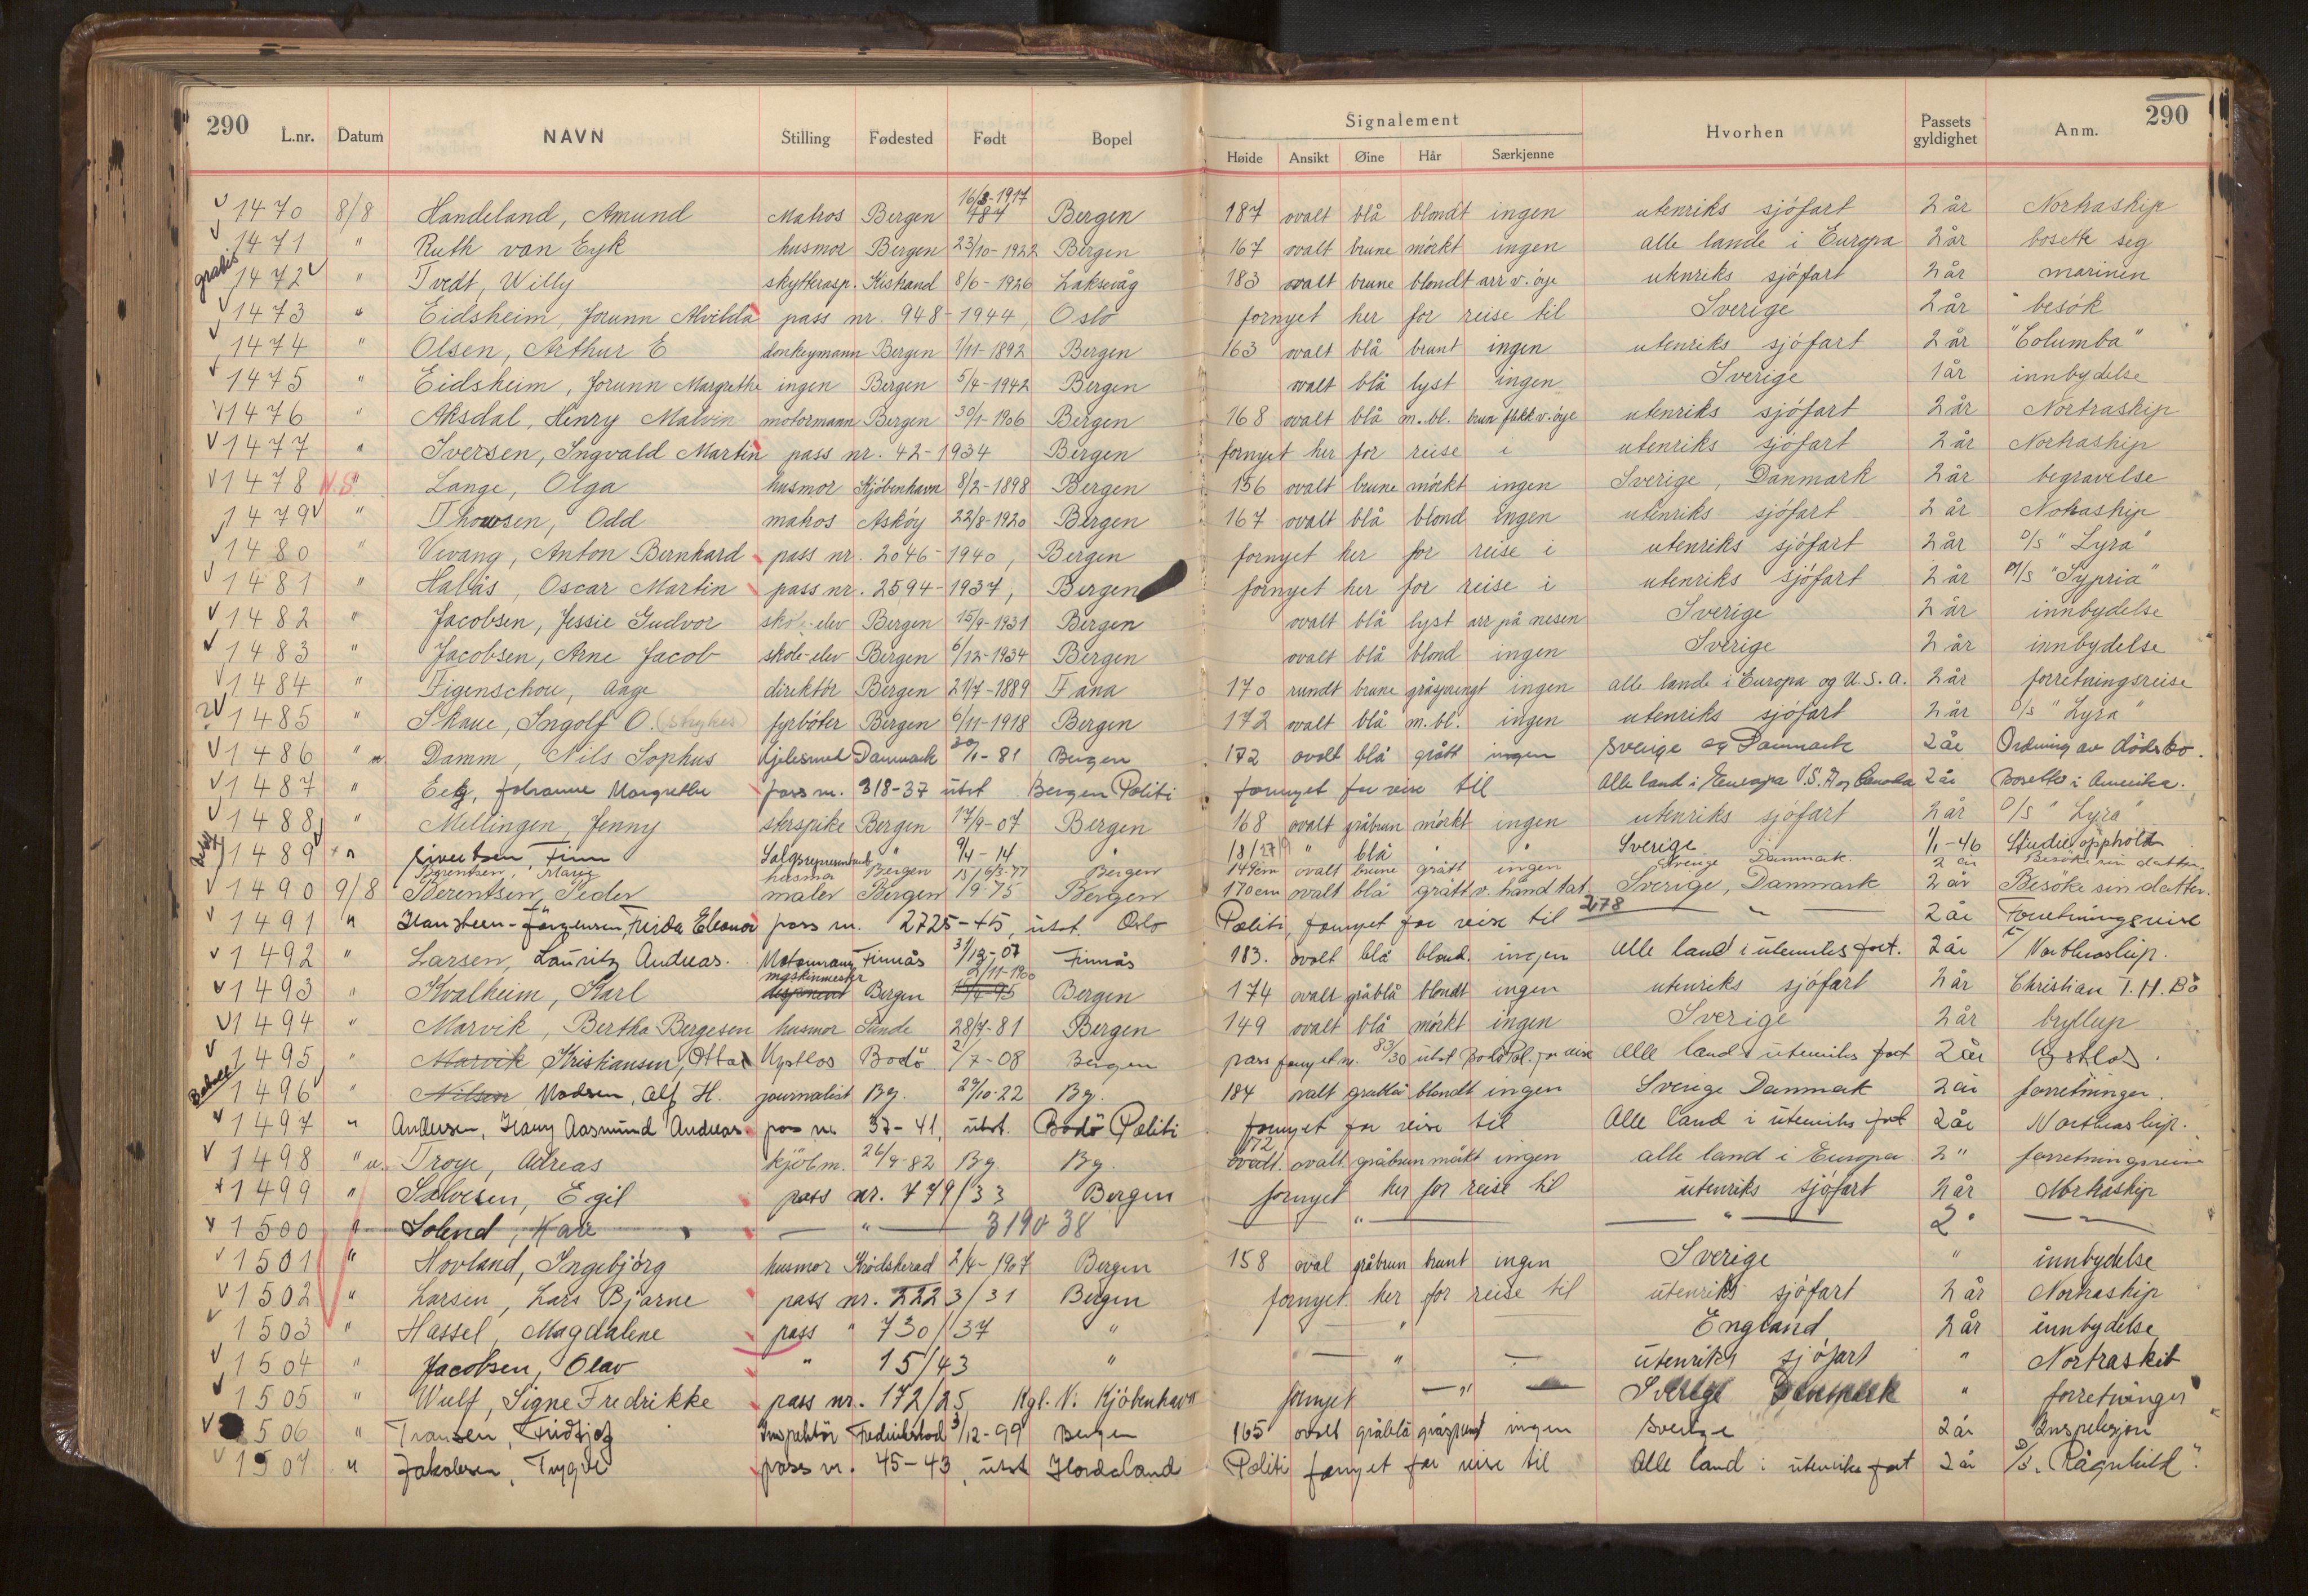 290 L.nr. Datum NAVN Stilling Fødested Født Bopel Signalement Hvorhen Passets gyldighet Anm. 290
Høide Ansikt Øine Hår Særkjenne
1470 8/8 Handeland, Amund Matros Bergen 16/8-1917 Bergen 187 ovalt blå blondt ingen utenriks sjöfart 2 år Nortraship
1471 " Ruth van Eyk husmor Bergen 23/10-1922 Bergen 167 ovalt brune mörkt ingen alle lande i Europa 2 år bosette seg
gratis 1472 " Tvedt, Willy skytterasp. Kistrand 8/6-1926 Laksevåg 183 ovalt brune blondt arr v. öye utenriks sjöfart 2 år marinen
1473 " Eidsheim, Jorunn Alvilda pass nr. 948-1944, Oslo fornyet her for reise til Sverige 2 år besök
1474 " Olsen, Arthur E donkeymann Bergen 1/11-1892 Bergen 163 ovalt blå brunt ingen utenriks sjöfart 2 år "Columba"
1475 " Eidsheim, Jorunn Margrethe ingen Bergen 5/4-1942 Bergen ovalt blå lyst ingen Sverige 1 år innbydelse
1476 " Aksdal, Henry Malvin motormann Bergen 30/1-1906 Bergen 168 ovalt blå m.bl. brun flekk v. öye utenriks sjöfart 2 år Nortraship
1477 " Iversen, Ingvald Martin pass nr. 42-1934 Bergen fornyet her for reise i utenriks sjöfart 2 år Nortraship
1478 N.S. " Lange, Olga husmor Kjöbenhavn 8/2-1898 Bergen 156 ovalt brune mörkt ingen Sverige, Danmark 2 år begravelse
1479 " Thowsen, Odd matros Asköy 22/8-1920 Bergen 167 ovalt blå blond ingen utenriks sjöfart 2 år Notraship
1480 " Vevang, Anton Bernhard pass nr. 2046-1940, Bergen fornyet her for reise i utenriks sjöfart 2 år D/S "Lyra"
1481 " Halås, Oscar Martin pass nr. 2594-1937, Bergen fornyet her for reise i utenriks sjöfart 2 år M/S "Sypria"
1482 " Jacobsen, Jessie Gudvor skole-elev Bergen 15/9-1931 Bergen ovalt blå lyst arr på nesen Sverige 2 år innbydelse
1483 " Jacobsen, Arne Jacob skole-elev Bergen 6/12-1934 Bergen ovalt blå blond ingen Sverige 2 år innbydelse
1484 " Figenschou, Aage direktör Bergen 21/7-1889 Fana 170 rundt brune gråsprengt ingen alle lande i Europa og U.S.A. 2 år forretningsreise
1485 " Skaue, Ingolf O. (strykes) fyrböter Bergen 6/11-1918 Bergen 172 ovalt blå m.bl. ingen utenriks sjöfart 2 år D/s "Lyra"
1486 " Damm, Nils Sophus Danmark 81 Bergen 172 ovalt blå grått ingen Sverige og Danmark 2 år Ordning av dödsbo.
1487 " Johanne Margrethe pass nr. 318-37 utst Bergen Politi fornyet for reise til Alle land i Europa U.S.A og Canada 2 år Bosette i Amerika.
1488 " Mellingen, Jenny Bergen 17/9-07 Bergen 168 ovalt gråbrun mörkt ingen utenriks sjöfart 2 år D/s "Lyra"
1489 " Sivertsen, Finn Salgsrepresentant " 9/4-14 " blå " " Sverige 1/1-46 Studieopphold
Berentsen, Mary husmor Bergen Bergen 149cm ovalt brune grått ingen Sverige Danmark 2 år Besöke sin datter
1490 9/8 Berentsen Peder maler Bergen 75 Bergen 170cm ovalt blå grått v. hånd tat. Sverige, Danmark 2 år Besöke sin datter.
1491 " Hansteen-Jörgensen, Frida Eleonor pass nr. 2725-45, utst. Oslo Politi, fornyet for reise til 278 — " — 2 år Forretningsreise
1492 " Larsen, Lauritz Andreas. Motormann Finnås 31/12-07 Finnås 183. ovalt blå blond. ingen Alle land i utenriks fart. 2 år Nortraship.
1493 " Kvalheim, Karl maskinmester disponent Bergen 2/11-1900 Bergen 174 ovalt gråblå blondt ingen utenriks sjöfart 2 år Christian T.H. Bö
1494 " Marvik, Bertha Bergesen husmor Sunde 28/7-81 Bergen 149 ovalt blå mörkt ingen Sverige 2 år bryllup
1495 " Marvik Kristiansen, Ottar Kystlos Bodö 2/7-08 Bergen pass fornyet nr. 83/30 utst Bodö Pol. for reise Alle land i utenriks fart 2 år Kystlos.
1496 " Nilsen Madsen, Alf H. journalist Bg. 29/10-22 Bg. 184 ovalt gråblå blondt ingen Sverige Danmark 2 år forretninger.
1497 " Andersen, Harry Aasmund Andreas pass nr 37-41, utst. Bodö Politi fornyet for reise til Alle land i utenriks fart 2 år Nortraship.
1498 " Troye, Adreas kjölm. 26/9-82 Bg Bg. 172 ovalt. ovalt gråbrun mörkt ingen alle land i Europa 2 " forretningsreise
1499 " Salvesen, Egil pass nr. 779/33 Bergen fornyet her for reise til utenriks sjöfart 2 år Nortraship
1500 " Solend, Kåre — " — 3190 38 — " — — " — 2 " — " —
1501 " Hovland, Ingebjörg husmor Krödsherad 2/4-1907 Bergen 158 oval gråbrun brunt ingen Sverige " innbydelse
1502 " Larsen, Lars Bjarne pass nr. 2223/31 Bergen fornyet her for reise til utenriks sjöfart 2 år Nortraship
1503 " Hassel, Magdalene pass " 730/37 " — " — England 2 år innbydelse
1504 " Jacobsen, Olav " 15/43 " — " — utenriks sjöfart " Nortraskib
1505 " Wulf, Signe Fredrikke pass nr. 172/25 Kgl. N. Kjöbenhavn fornyet — " — Sverige Danmark " forretninger
506 " Transen, Fridtjof Inspektör Fredrikstad 3/12-99 Bergen 165 ovalt gråblå gråsprengt ingen Sverige 2 år Inspeksjon
1507 " Jakobsen, Trygve pass nr. 45-43, utst Hordaland Politi fornyet for reise til Alle land i utenriks fart 2 år D/S. "Ragnhild".